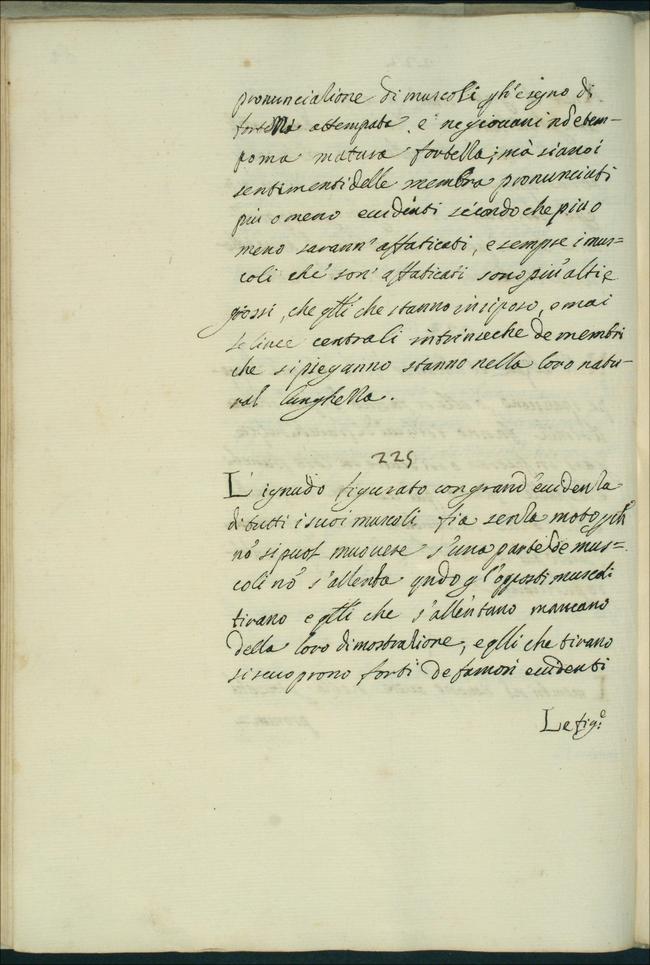 pronuncialione di muscoli pch'è segno di
fortella attempata, e ne giouani nō è tem-
po ma matura fortella; mà siano i
sentimenti delle membra pronunciati
piu o meno euidenti secondo che piu o
meno sarann' affaticati, e sempre i mus=
coli che son' affaticati sono più alti e
grossi, che qlli che stanno in riposo, e mai
le linee centrali intrinseche de membri
che si piegano stanno nella loro natu-
ral lunghella.
225
L' ignudo figurato con grand' euidenla
di tutti i suoi muscoli fia senla moto pch
nō si puol muouere s' una parte de mus=
coli nō s'allenta qndo gl'opposti muscoli
tirano e qlli che s'allentano mancano
della loro dimostralione, e qlli che tirano
si scuoprono forti de fansi euidenti
Le fig:e